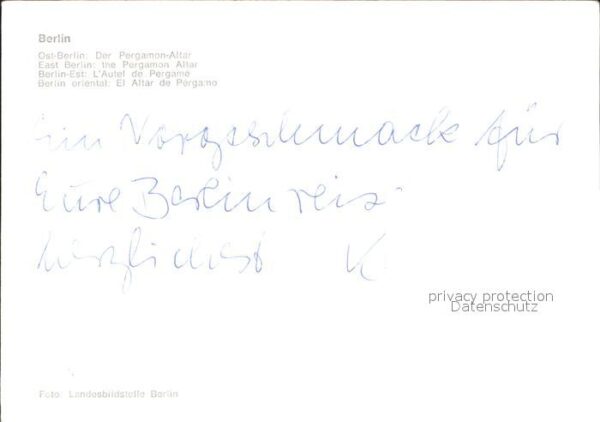 Berlin
Ost-Berlin: Der Pergamon-Altar
East Berlin: the Pergamon Altar
Berlin-Est: L'Autel de Pergame
Berlin oriental: El Altar de Pérgamo
Ein Vorgeschmack für
Eure Berlinreise
herzlichst K.
privacy protection
Datenschutz
Foto: Landesbildstelle Berlin